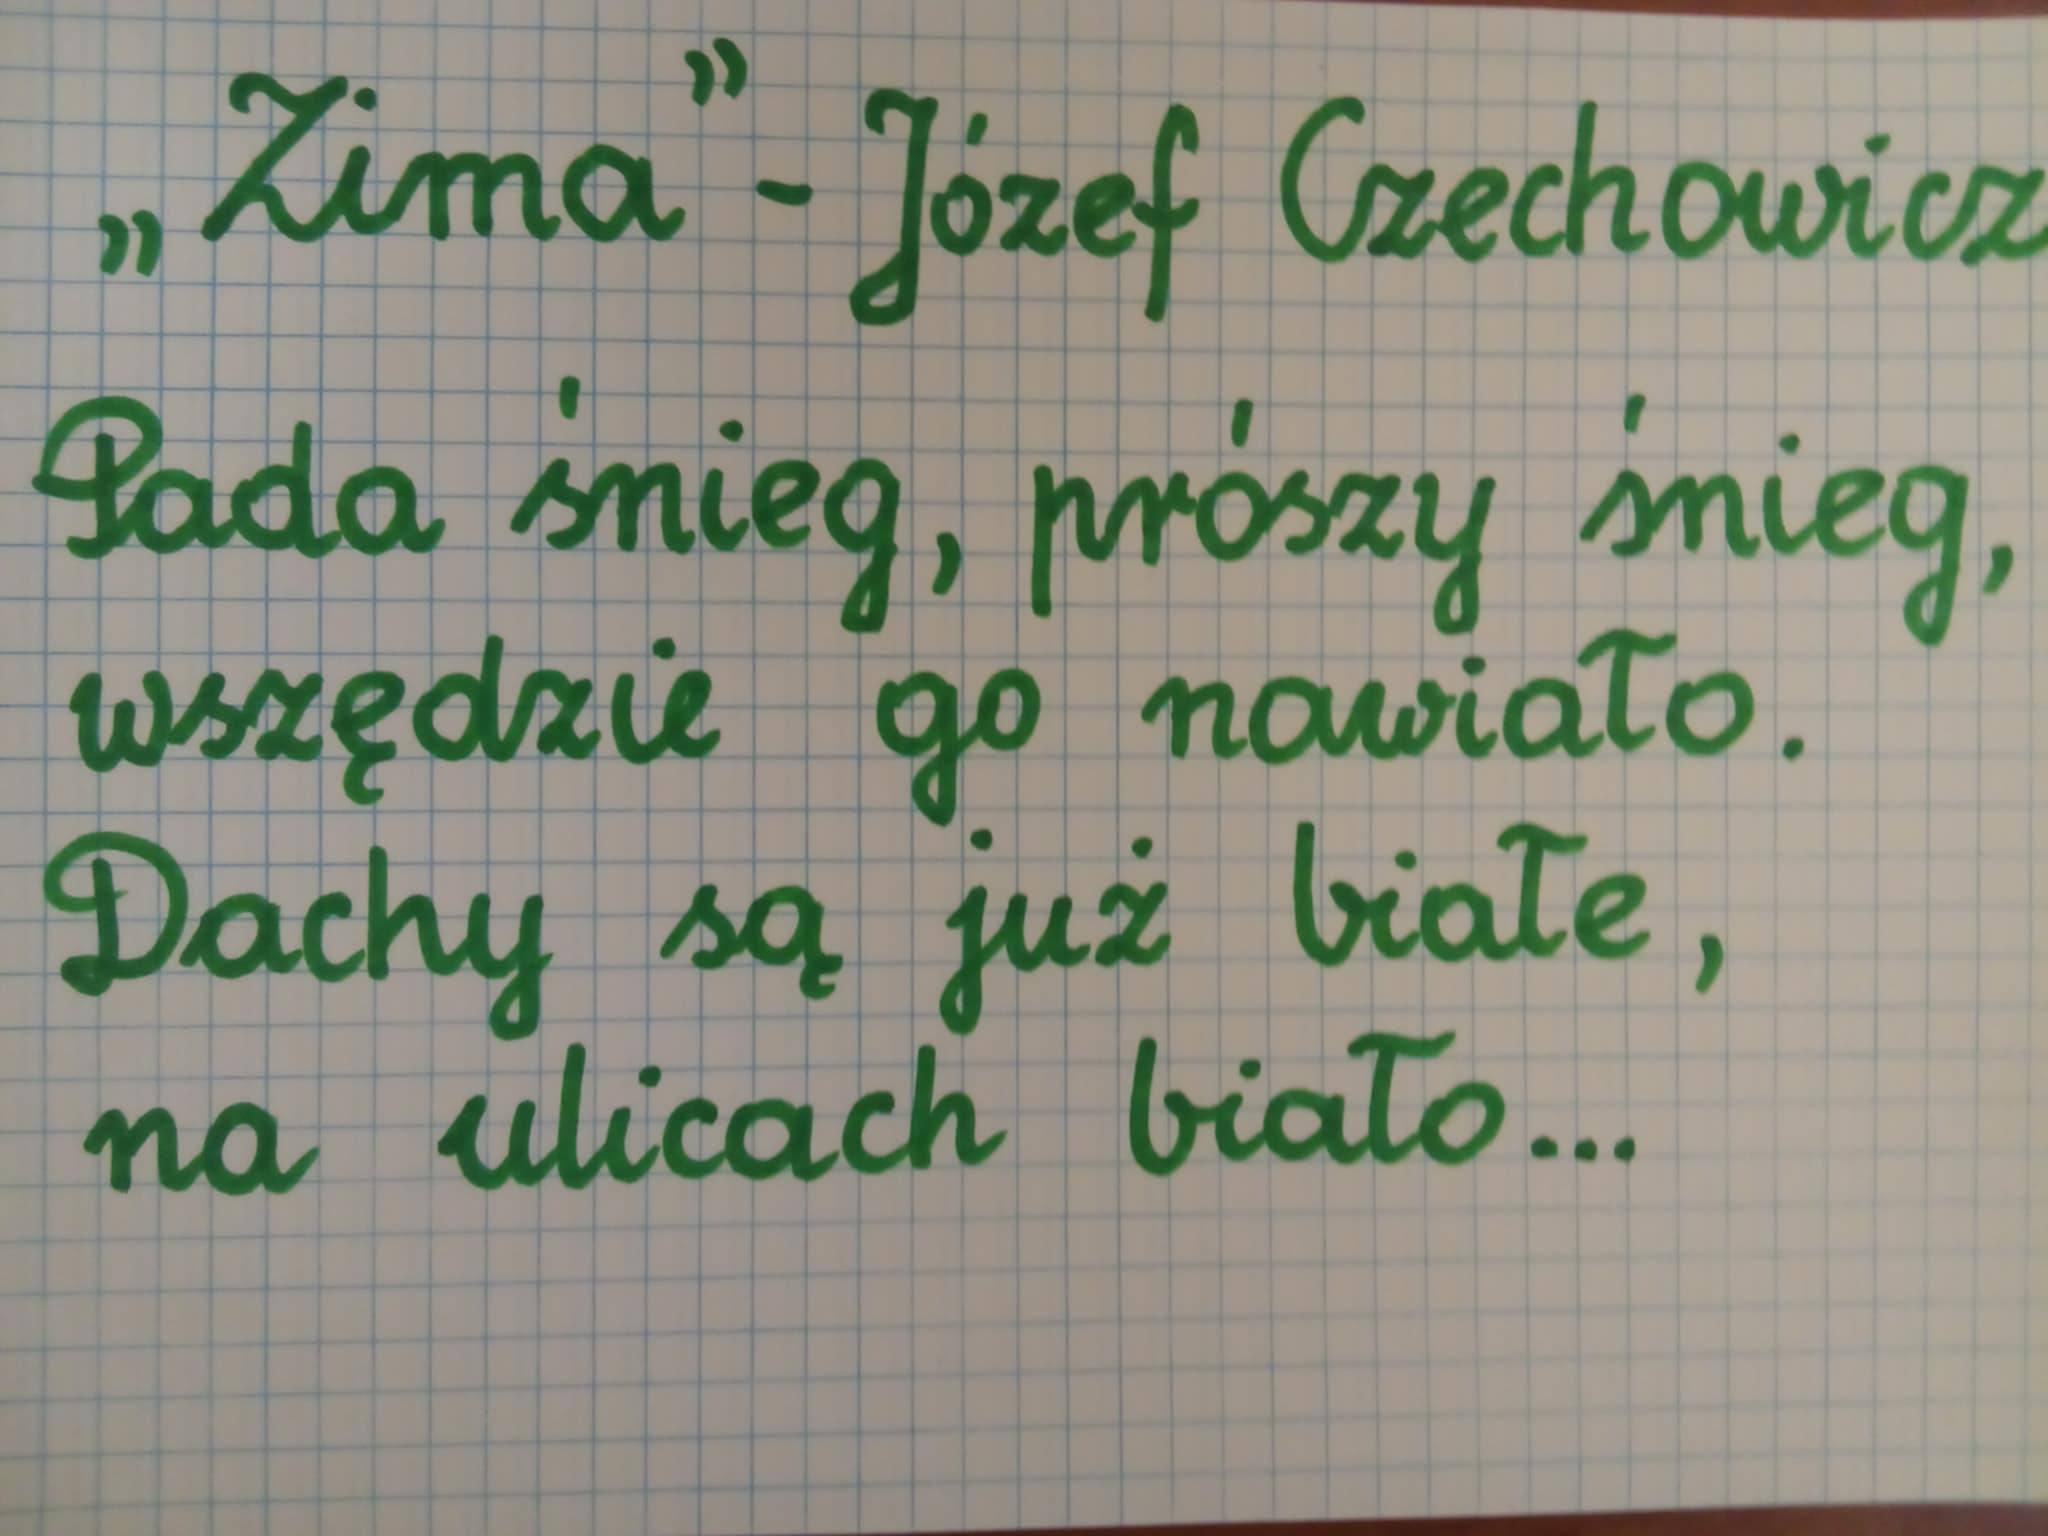 „Zima” - Józef Czechowicz
Pada śnieg, prószy śnieg,
wszędzie go nawiało.
Dachy są już białe,
na ulicach biało...